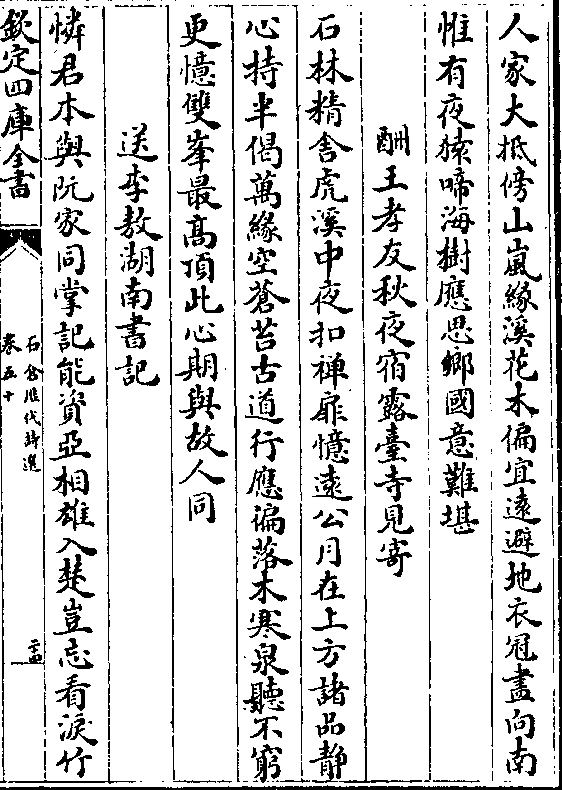 人家大抵傍山嵐緣溪花木偏宜遠避地衣冠盡向南
惟有夜猿啼海樹應思鄉國意難堪
酬王孝友秋夜宿露臺寺見寄
石林精舍虎溪中夜扣禅扉憶遠公月在上方諸品静
心持半偈萬緣空蒼苔古道行應遍落木寒泉聽不窮
更憶雙峯最高頂此心期與故人同
送李敖湖南書記
憐君本與阮家同掌記能資亞相雄入楚豈忘看淚竹
欽定四庫全書
石倉歴代詩選
卷五十
二十四